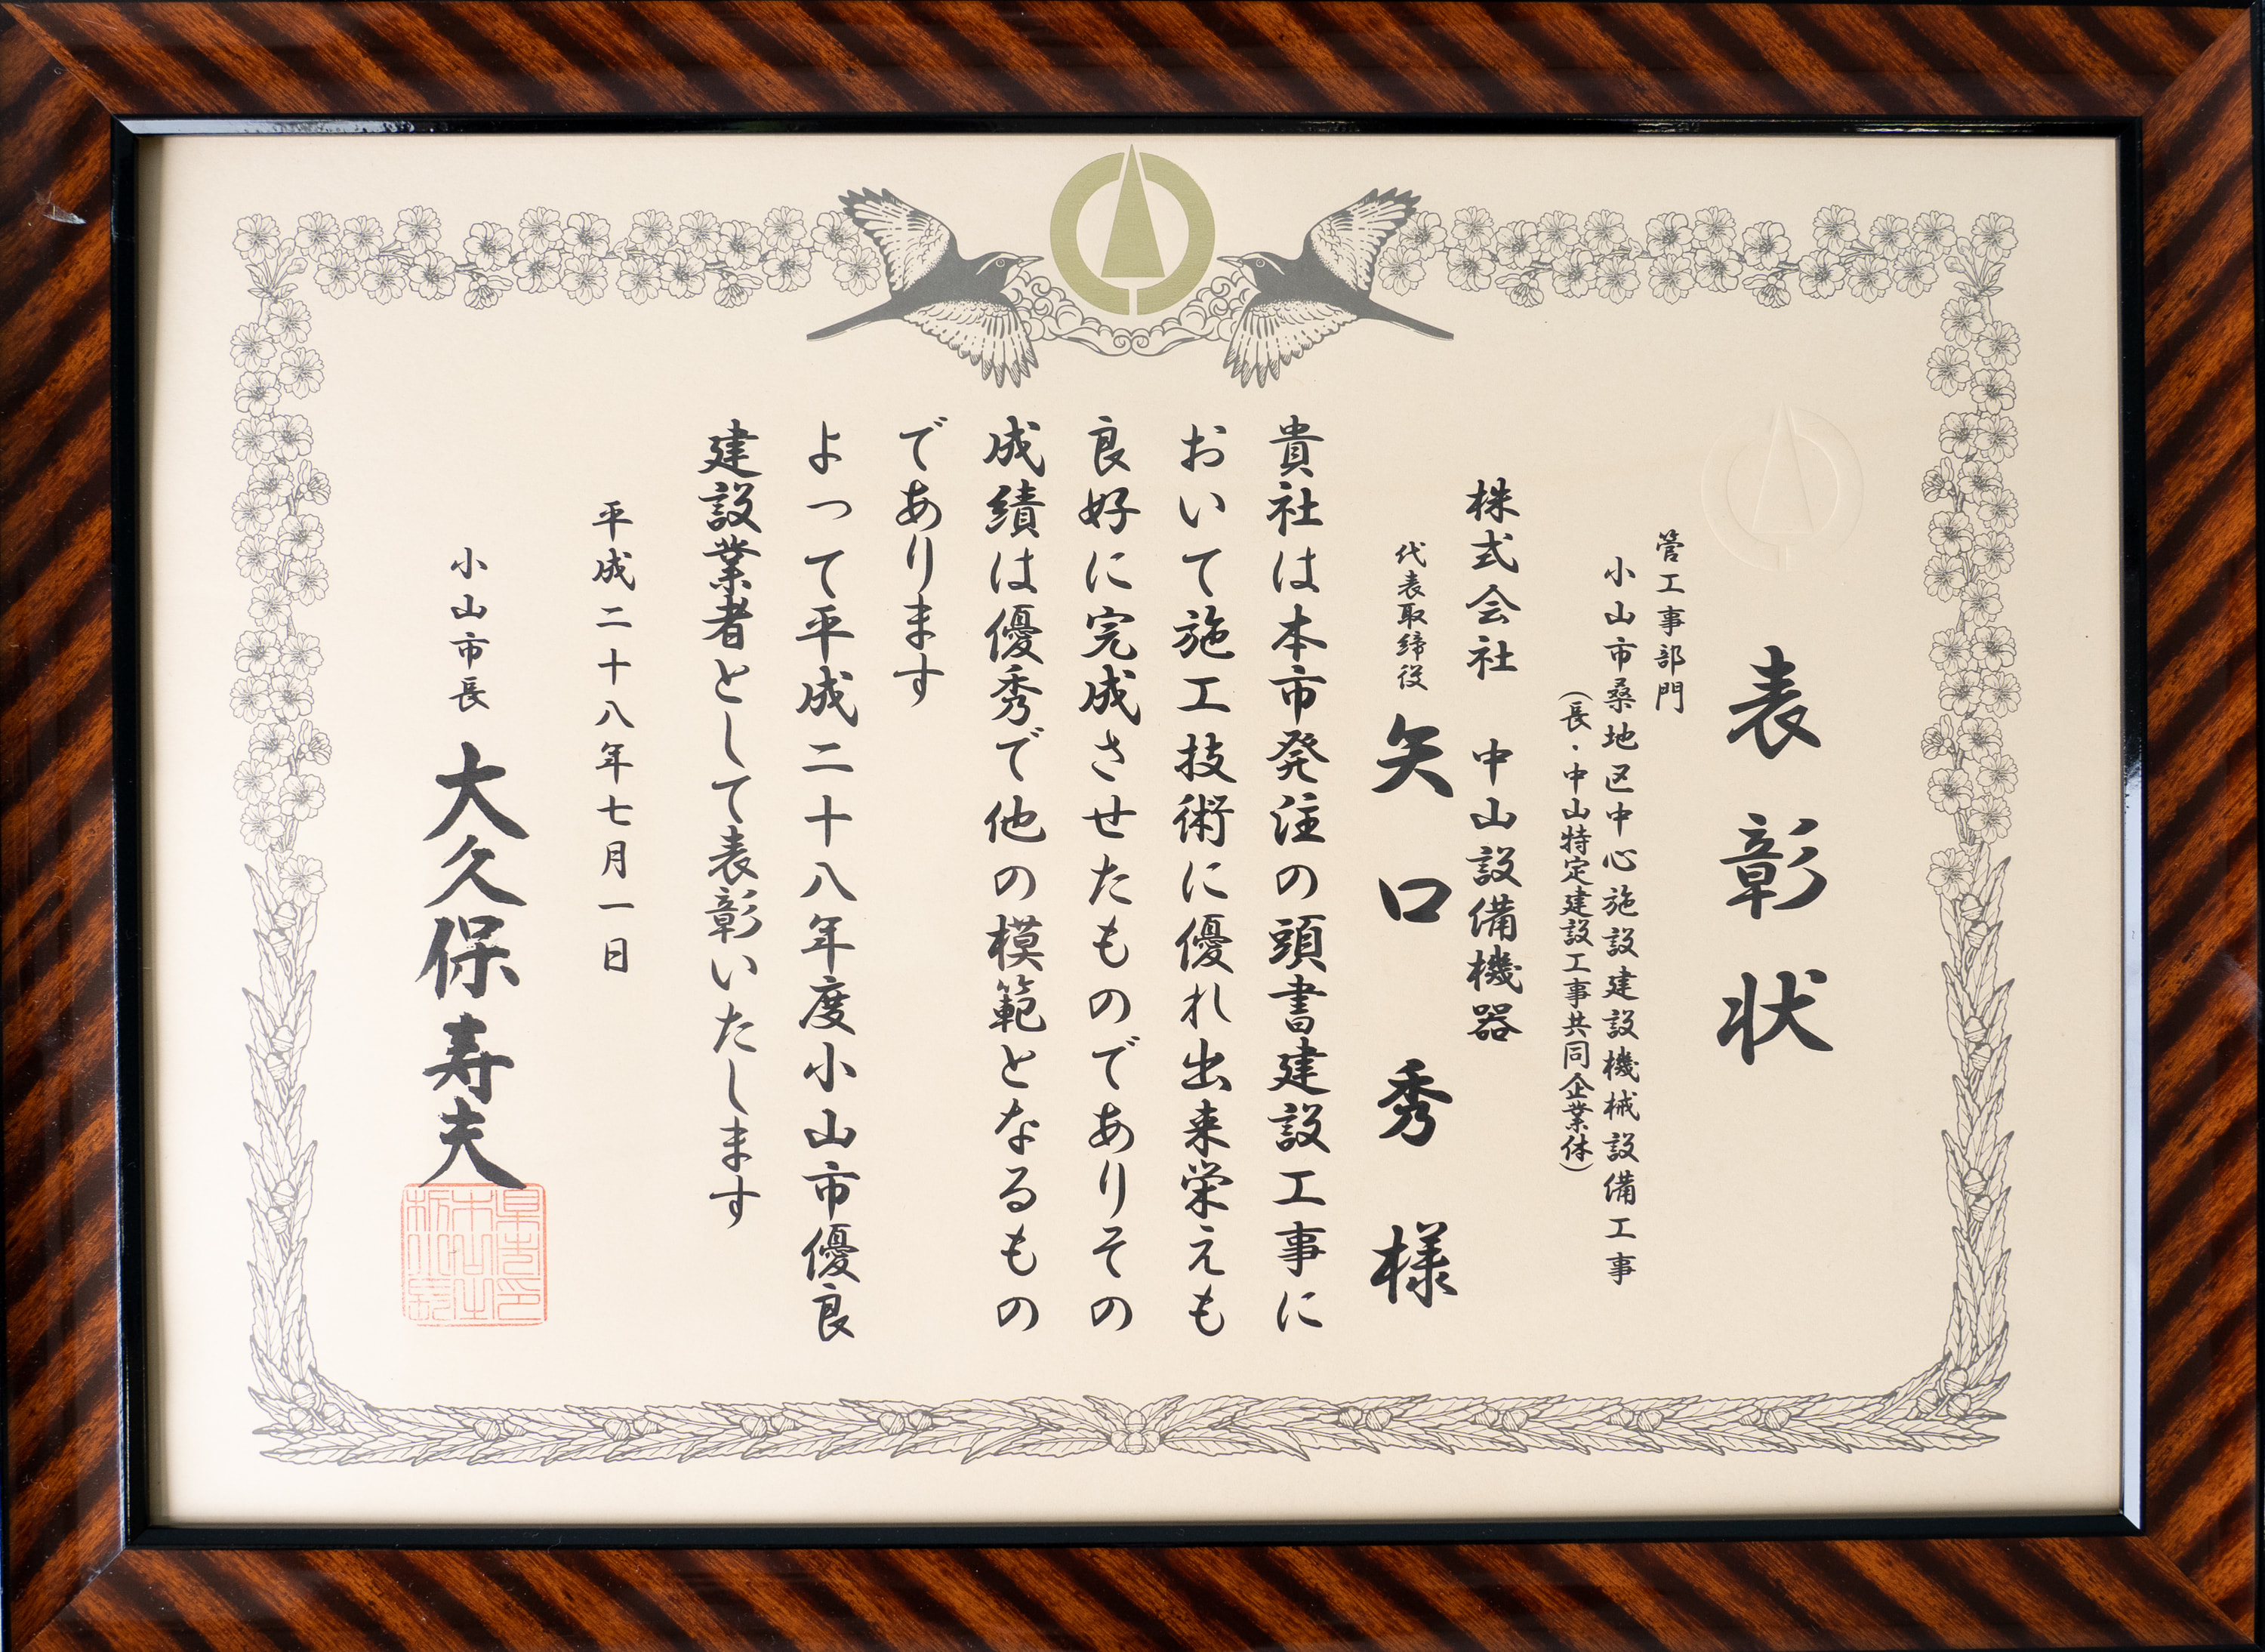 表彰状
管工事部門
小山市桑地区中心施設建設機械設備工事
（長・中山特定建設工事共同企業体）
株式会社 中山設備機器
代表取締役 矢口秀様
貴社は本市発注の頭書建設工事に
おいて施工技術に優れ出来栄えも
良好に完成させたものでありその
成績は優秀で他の模範となるもの
であります
よって平成二十八年度小山市優良
建設業者として表彰いたします
平成二十八年七月一日
小山市長 大久保寿夫